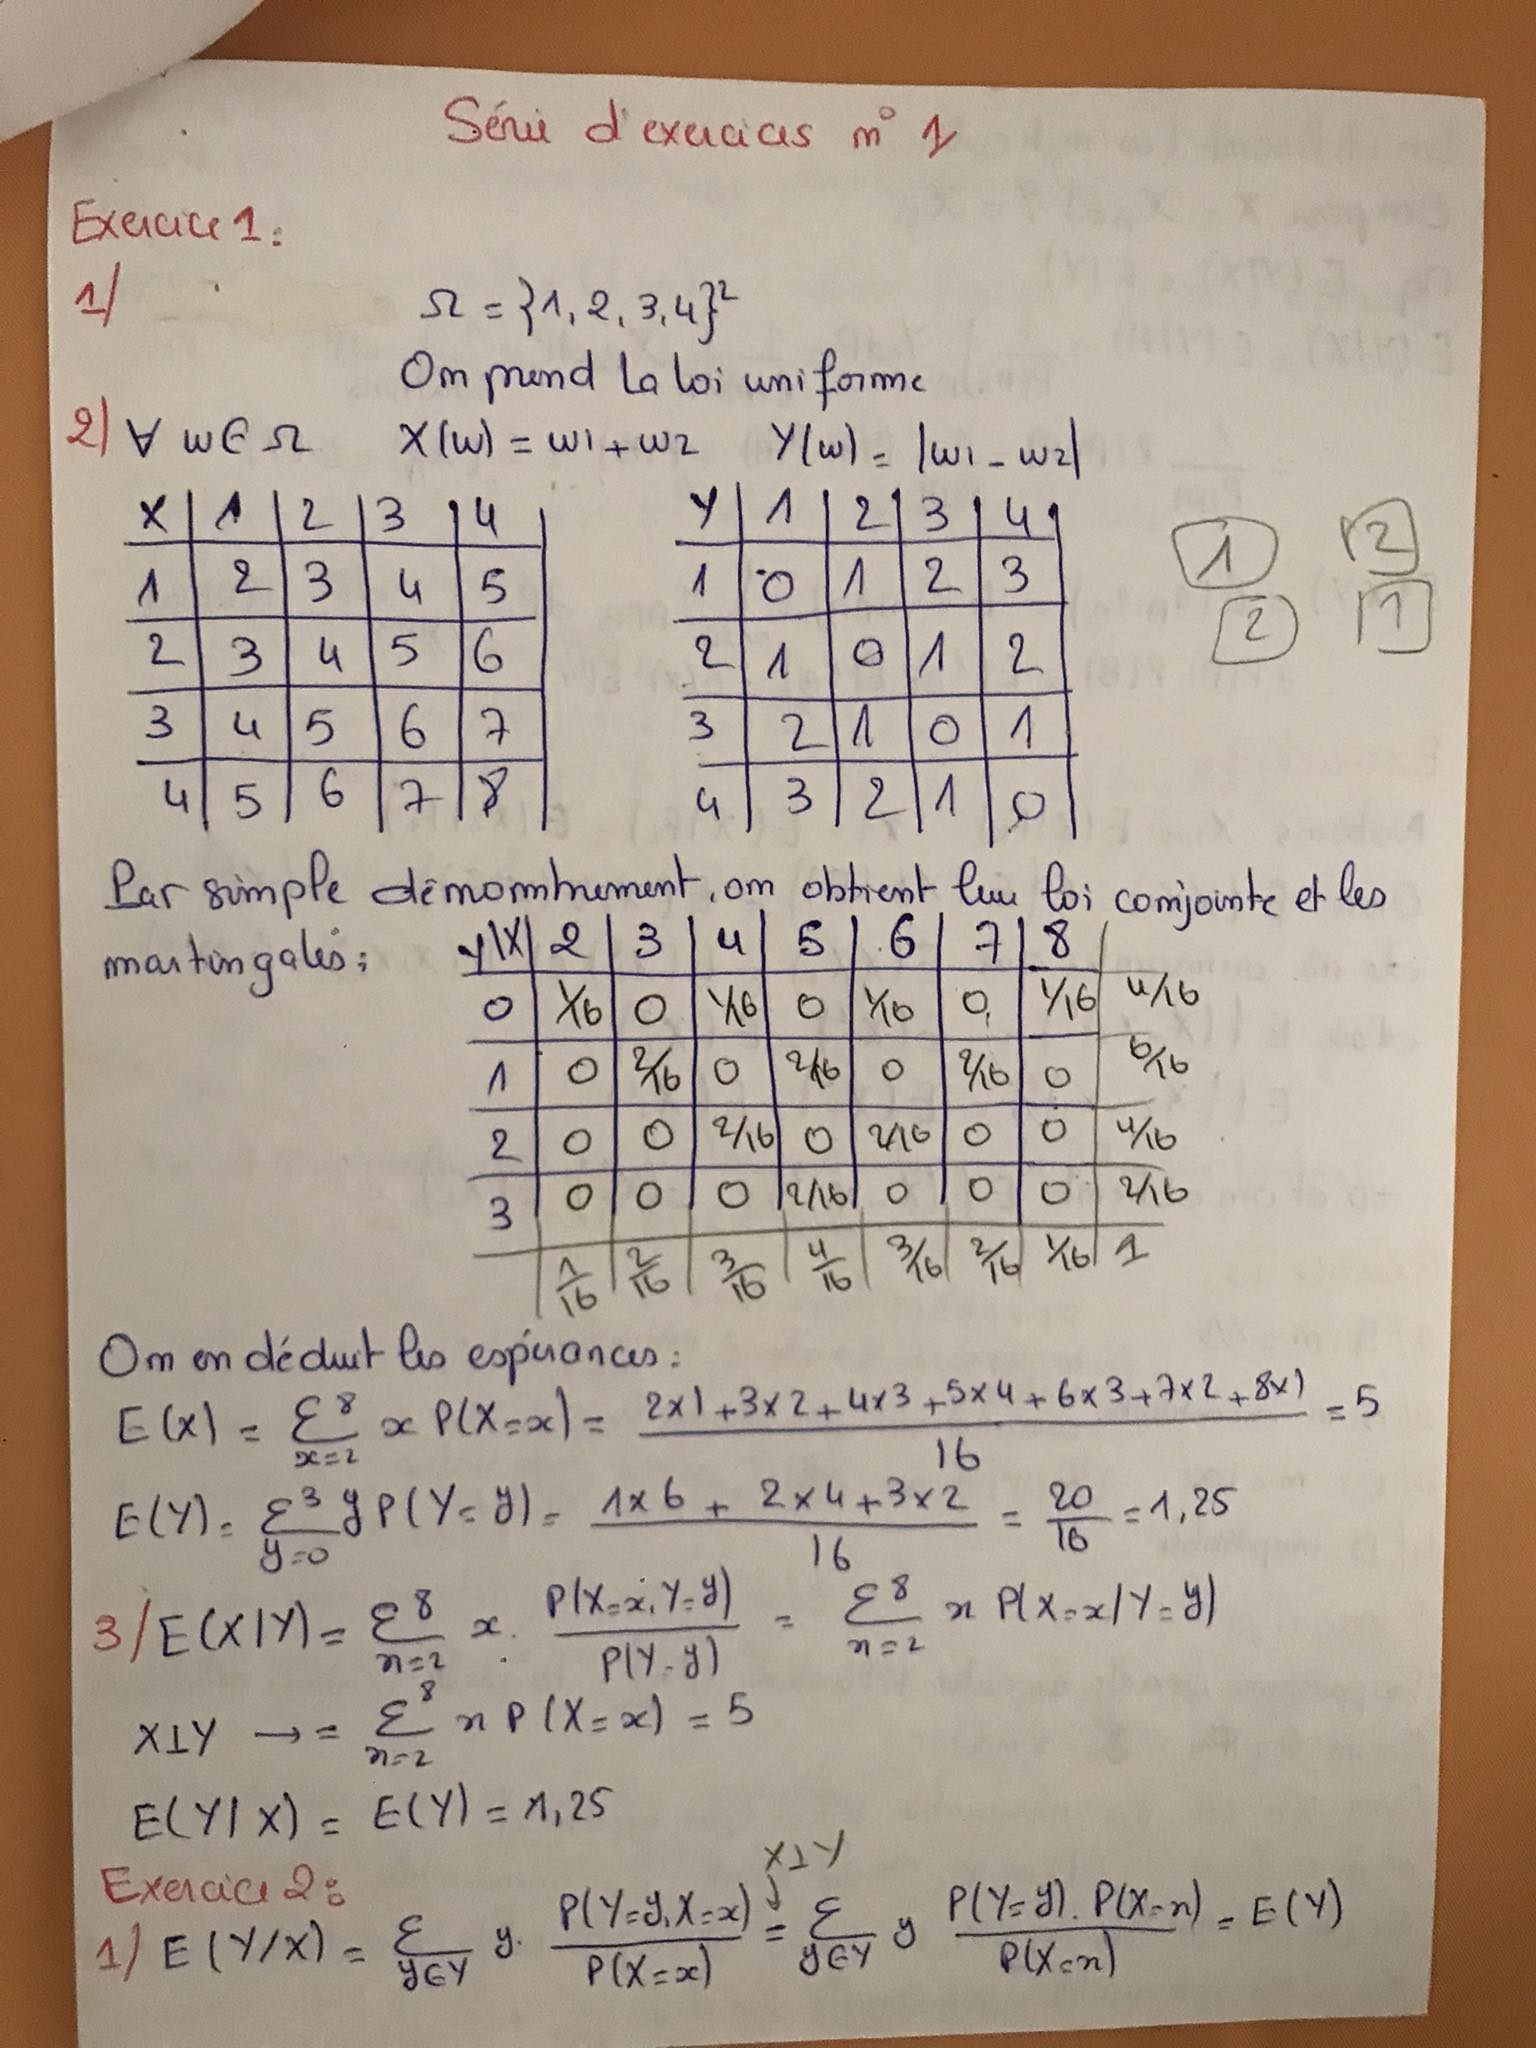 Série d'exercices n° 1
Exercice 1:
1/ Ω = {1, 2, 3, 4}²
On prend la loi uniforme
2/ ∀ w ∈ Ω X(w) = w1 + w2 Y(w) = |w1 - w2|
X 1 2 3 4
1 2 3 4 5
2 3 4 5 6
3 4 5 6 7
4 5 6 7 8
Y 1 2 3 4
1 0 1 2 3
2 1 0 1 2
3 2 1 0 1
4 3 2 1 0
1 2
2 1
Par simple dénombrement, on obtient leur loi conjointe et les
martingales:
Y\X 2 3 4 5 6 7 8
0 1/16 0 1/16 0 1/16 0 1/16 4/16
1 0 2/16 0 2/16 0 2/16 0 6/16
2 0 0 2/16 0 2/16 0 0 4/16
3 0 0 0 2/16 0 0 0 2/16
1/16 2/16 3/16 4/16 3/16 2/16 1/16 1
On en déduit les espérances:
E(X) = Σ_{x=2}^8 x P(X=x) = (2x1+3x2+4x3+5x4+6x3+7x2+8x1)/16 = 5
E(Y) = Σ_{y=0}^3 y P(Y=y) = (1x6 + 2x4 + 3x2)/16 = 20/16 = 1,25
3/ E(X|Y) = Σ_{x=2}^8 x. P(X=x, Y=y)/P(Y=y) = Σ_{x=2}^8 x P(X=x|Y=y)
X⊥Y → = Σ_{x=2}^8 x P(X=x) = 5
E(Y|X) = E(Y) = 1,25
Exercice 2:
X⊥Y
↓
1/ E(Y/X) = Σ_{y∈Y} y. P(Y=y, X=x)/P(X=x) = Σ_{y∈Y} y P(Y=y). P(X=x)/P(X=x) = E(Y)